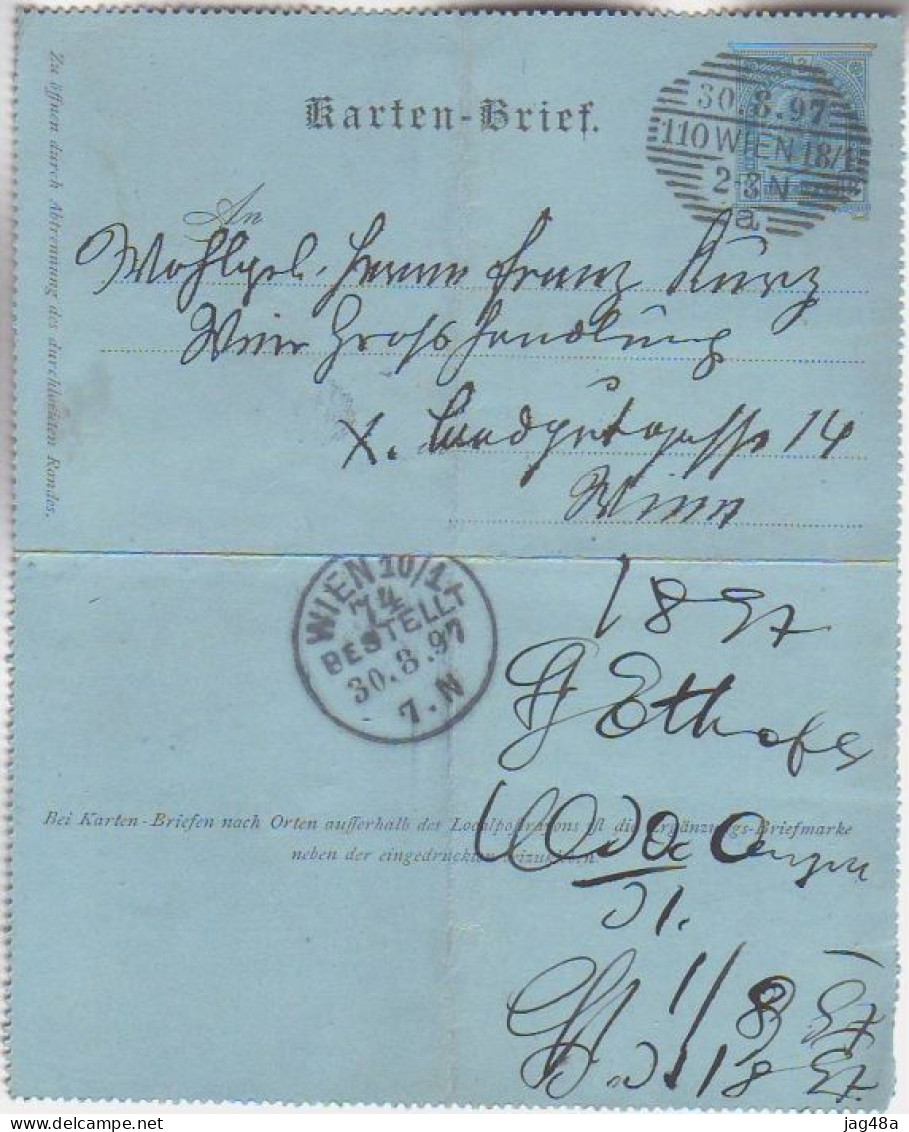 Zu öffnen durch Abtrennung des durchlochten Randes.
Karten-Brief.
30.8.97
110 WIEN 18/1
2-3 N
a
An
Wohlgeb. Herrn Franz Kurz
Wein Grosshandlung
X. Landgutgasse 14
Wien
WIEN 10/1
74
BESTELLT
30.8.97
7.N
1897
Bei Karten-Briefen nach Orten aufserhalb des Localpostrayons ist die Ergänzungs-Briefmarke
neben der eingedruckten beizukleben.
31.
jag48a